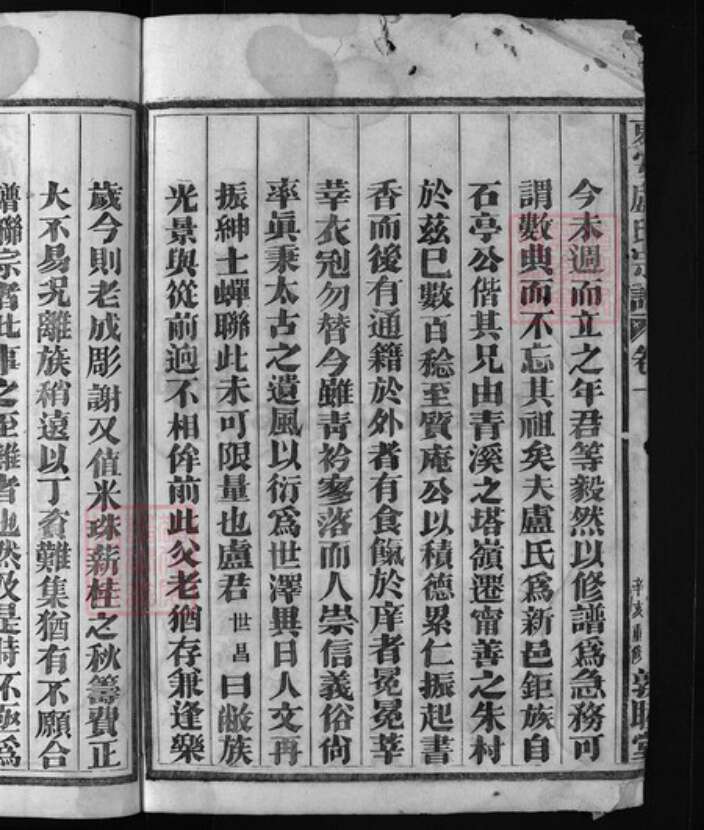 盧氏宗譜 卷一
辛亥重修 敦睦堂
今未週而立之年君等毅然以修譜爲急務可
謂數典而不忘其祖矣夫盧氏爲新邑鉅族自
石亭公偕其兄由青溪之塔嶺遷甯善之朱村
於茲巳數百稔至質庵公以積德累仁振起書
香而後有通籍於外者有食餼於庠者冕冕莘
莘衣冠勿替今雖靑衿寥落而人崇信義俗尙
率眞秉太古之遺風以衍爲世澤異日人文再
振紳士蟬聯此未可限量也盧君世昌曰敝族
光景與從前逈不相侔前此父老猶存兼逢樂
歲今則老成彫謝又值米珠薪桂之秋籌費正
大不易况離族稍遠以丁貧難集猶有不願合
譜聯宗者此事之至難者也然及是時不亟爲